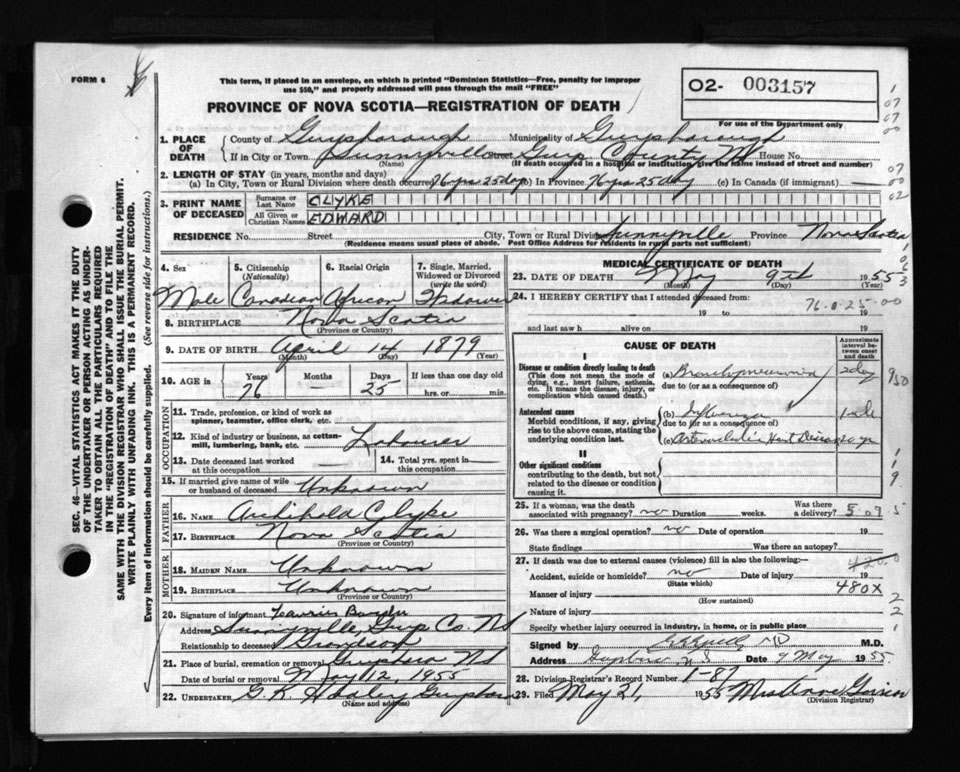 FORM 6
This form, if placed in an envelope, on which is printed "Dominion Statistics—Free, penalty for improper
use $50," and properly addressed will pass through the mail "FREE"
PROVINCE OF NOVA SCOTIA—REGISTRATION OF DEATH
02- 003157
For use of the Department only
1. PLACE OF DEATH
County of Guysborough Municipality of Guysborough
If in City or Town Sunnyville Guys County NS House No.
(Name) (If death occurred in a hospital or institution, give the name instead of street and number)
2. LENGTH OF STAY (in years, months and days)
(a) In City, Town or Rural Division where death occurred 76 yrs 25 days (b) In Province 76 yrs 25 day (c) In Canada (if immigrant) —
3. PRINT NAME OF DECEASED
Surname or Last Name CLYKE
All Given or Christian Names EDWARD
RESIDENCE No. Street City, Town or Rural Division Sunnyville Province Nova Scotia
(Residence means usual place of abode. Post Office Address for residents in rural parts not sufficient)
4. Sex Male
5. Citizenship (Nationality) Canadian
6. Racial Origin African
7. Single, Married, Widowed or Divorced (write the word) Widower
8. BIRTHPLACE Nova Scotia
(Province or Country)
9. DATE OF BIRTH April 14 1879
(Month) (Day) (Year)
10. AGE in Years 76 Months — Days 25 If less than one day old
hrs. or min.
OCCUPATION
11. Trade, profession, or kind of work as
spinner, teamster, office clerk, etc.
12. Kind of industry or business, as cotton-
mill, lumbering, bank, etc. Labourer
13. Date deceased last worked
at this occupation
14. Total yrs. spent in
this occupation
15. If married give name of wife
or husband of deceased Unknown
FATHER
16. NAME Archibald Clyke
17. BIRTHPLACE Nova Scotia
(Province or Country)
MOTHER
18. MAIDEN NAME Unknown
19. BIRTHPLACE Unknown
(Province or Country)
20. Signature of informant
Address Sunnyville, Guys Co. NS
Relationship to deceased Grandson
21. Place of burial, cremation or removal NS
Date of burial or removal May 12, 1955
22. UNDERTAKER G. K.
(Name and address)
MEDICAL CERTIFICATE OF DEATH
23. DATE OF DEATH May 9th 1955
(Month) (Day) (Year)
24. I HEREBY CERTIFY that I attended deceased from:
76-0-25-00
19 to 19
and last saw h alive on 19
CAUSE OF DEATH
Approximate interval between onset and death
I
Disease or condition directly leading to death
(This does not mean the mode of
dying, e.g., heart failure, asthenia,
etc. It means the disease, injury, or
complication which caused death.)
(a) Bronchopneumonia 2 day
due to (or as a consequence of)
Antecedent causes
Morbid conditions, if any, giving
rise to the above cause, stating the
underlying condition last.
(b) Influenza 1 wk
due to (or as a consequence of)
(c) Arteriosclerotic Heart Disease
II
Other significant conditions
contributing to the death, but not
related to the disease or condition
causing it.
25. If a woman, was the death
associated with pregnancy? no Duration weeks. Was there
a delivery?
26. Was there a surgical operation? no Date of operation 19
State findings Was there an autopsy?
27. If death was due to external causes (violence) fill in also the following:—
Accident, suicide or homicide? no Date of injury 19
(State which)
Manner of injury 480X
(How sustained)
Nature of injury
Specify whether injury occurred in industry, in home, or in public place
Signed by MD M.D.
Address NS Date 9 May 1955
28. Division Registrar's Record Number 1-87
29. Filed May 21, 1955
(Division Registrar)
SEC. 46—VITAL STATISTICS ACT MAKES IT THE DUTY
OF THE UNDERTAKER OR PERSON ACTING AS UNDER-
TAKER TO OBTAIN ALL THE PARTICULARS REQUIRED
IN THE "REGISTRATION OF DEATH" AND TO FILE THE
SAME WITH THE DIVISION REGISTRAR WHO SHALL ISSUE THE BURIAL PERMIT.
WRITE PLAINLY WITH UNFADING INK. THIS IS A PERMANENT RECORD.
Every item of information should be carefully supplied. (See reverse side for instructions.)